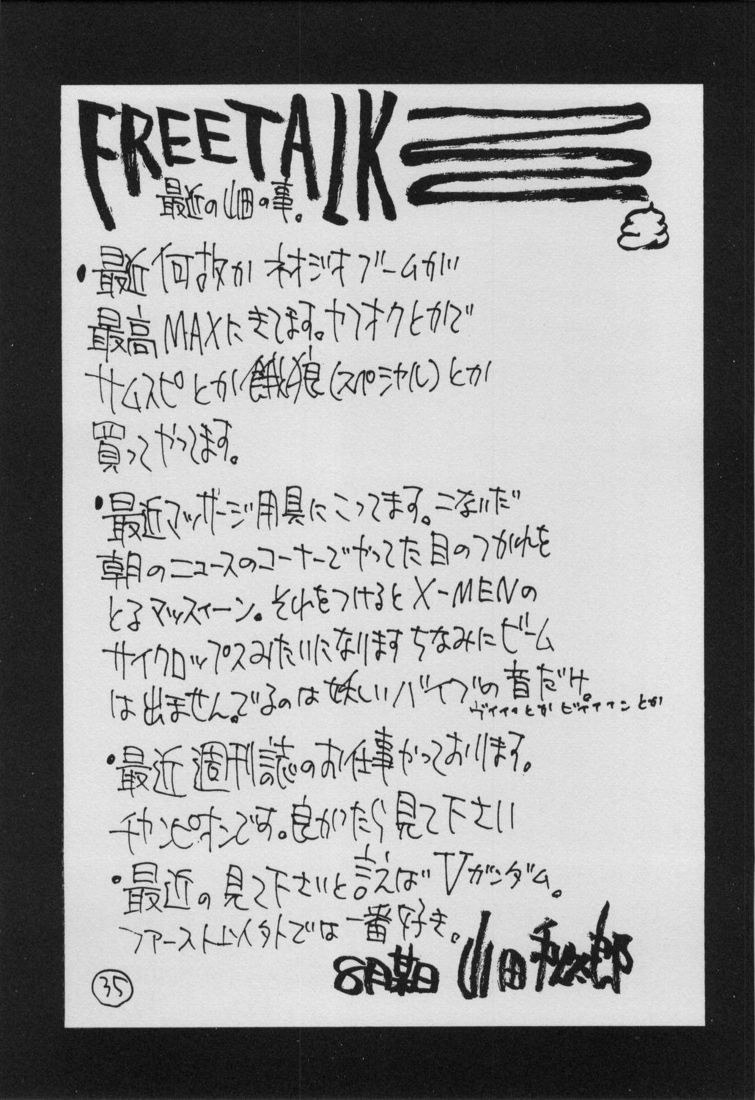 FREETALK
最近の山田の事。
・最近何故かネオジオブームが
最高MAXにきてます。ヤフオクとかで
サムスピとか餓狼(スペシャル)とか
買ってやってます。
・最近マッサージ用具にこってます。こないだ
朝のニュースのコーナーでやってた目のつかれを
とるマッスィーン。それをつけるとX-MENの
サイクロップスみたいになります ちなみにビーム
は出ません。でるのは妖しいバイブの音だけ。
ヴイイイとか ビイイイン とか
・最近週刊誌のお仕事やっております。
チャンピオンです。良かったら見て下さい
・最近の見て下さいと言えばVガンダム。
ファースト以外では一番好き。
8月某日 山田
35